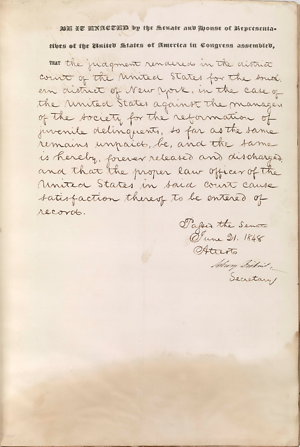 BE IT ENACTED by the Senate and House of Representa-
tives of the United States of America in Congress assembled,
THAT the judgment rendered in the district
court of the United States for the south
ern district of New York, in the case of
the United States against the managers
of the society for the reformation of
juvenile delinquents, so far as the same
remains unpaid, be, and the same
is hereby, forever released and discharged,
and that the proper law officer of the
United States in said court cause
satisfaction thereof to be entered of
record.
Passed the Senate
June 21. 1848
Attest
Secretary